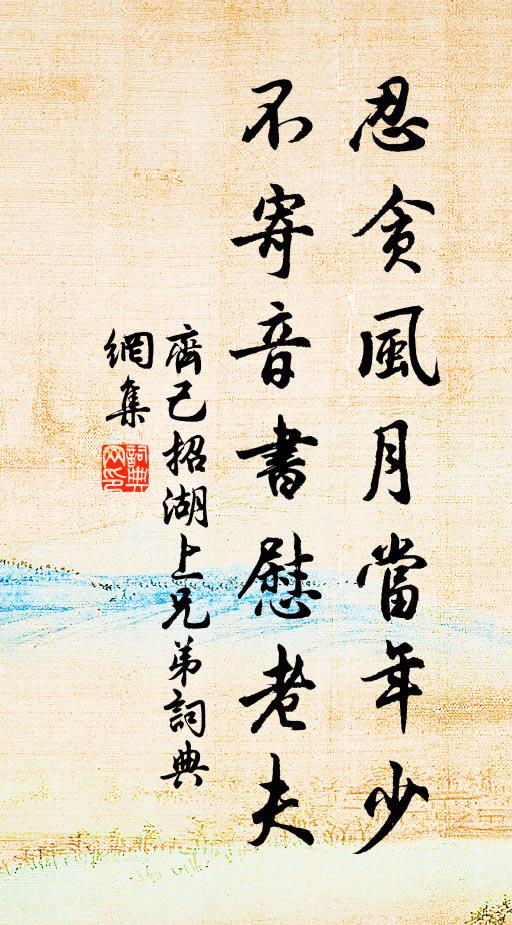 忍貪風月當年少
不寄音書慰老夫
齊己招湖上兄弟詞典
網集
詞典
网印